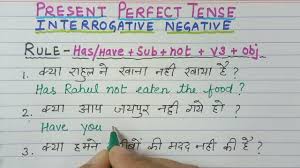 PRESENT PERFECT TENSE
INTERROGATIVE NEGATIVE
RULE - Has/Have + Sub + not + V3 + obj
1. क्या राहुल ने खाना नहीं खाया है ?
Has Rahul not eaten the food ?
2. क्या आप जयपुर नहीं गये हो ?
Have you
3. क्या हमने की मदद नहीं की है ?